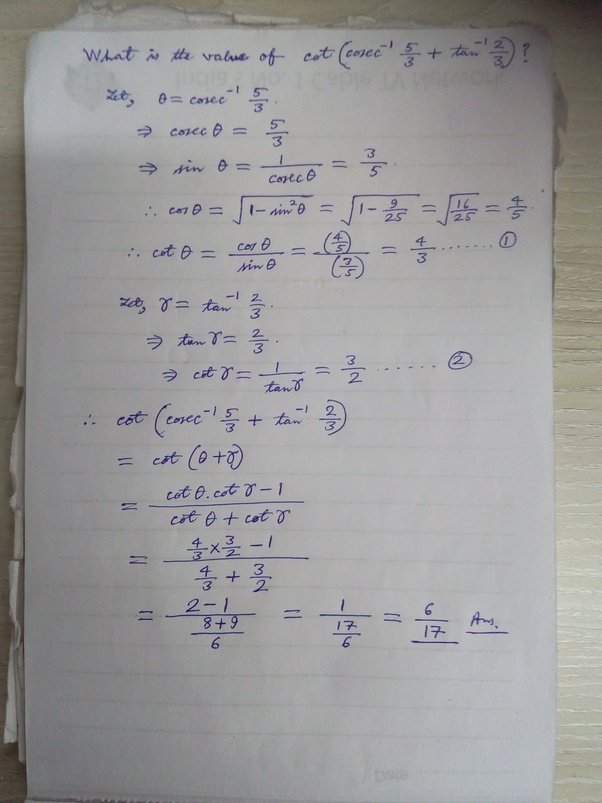 What is the value of cot (cosec⁻¹ 5/3 + tan⁻¹ 2/3)?
Let, θ = cosec⁻¹ 5/3.
⇒ cosec θ = 5/3
⇒ sin θ = 1/cosec θ = 3/5.
∴ cos θ = √(1 - sin²θ) = √(1 - 9/25) = √(16/25) = 4/5.
∴ cot θ = cos θ/sin θ = (4/5)/(3/5) = 4/3 ....... ①
Let, γ = tan⁻¹ 2/3.
⇒ tan γ = 2/3.
⇒ cot γ = 1/tan γ = 3/2 ...... ②
∴ cot (cosec⁻¹ 5/3 + tan⁻¹ 2/3)
= cot (θ + γ)
= (cot θ . cot γ - 1)/(cot θ + cot γ)
= (4/3 × 3/2 - 1)/(4/3 + 3/2)
= (2 - 1)/((8 + 9)/6) = 1/(17/6) = 6/17 Ans.